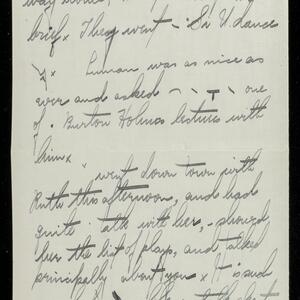 brief x They went - Sr U. dance
x Luman was as nice as
ever and asked - - T - one
of Burton Holmes lectures with
him x " went down town with
Ruth this afternoon, and had
quite talk with her, - showed
her the list of plays, and talked
principally about you x It is sad